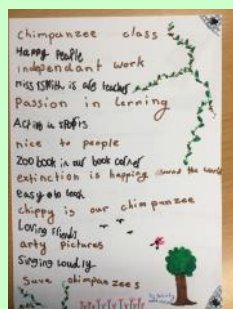 Chimpanzee class
Happy People
independant work
miss is are teacher
Passion in Lerning
Active in sports
nice to people
Zoo book in our book corner
extinction is happing around the world
easy to teach
chippy is our chimpanzee
Loving friends
arty pictures
Singing loudly
Save chimpanzees
by